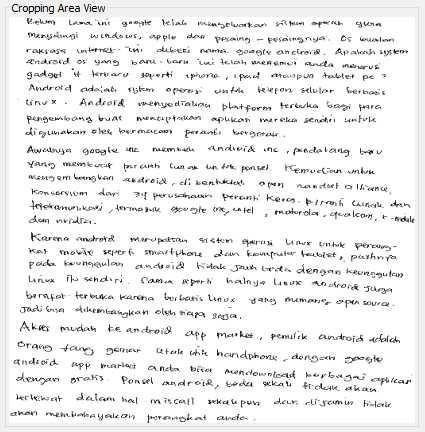 Cropping Area View
Belum lama ini google telah mengeluarkan sistem operasi guna
menyaingi windows, apple dan pesaing - pesaingnya. Os buatan
raksasa internet ini diberi nama google android. Apakah system
android os yang baru-baru ini telah menemui anda menerusi
gadget it terbaru seperti iphone, ipad ataupun tablet pc?
Android adalah sistem operasi untuk telepon selular berbasis
linux. Android menyediakan platform terbuka bagi para
pengembang buat menciptakan aplikasi mereka sendiri untuk
digunakan oleh bermacam peranti bergerak.
Awalnya google inc membeli android inc, pendatang baru
yang membuat peranti lunak untuk ponsel. Kemudian untuk
mengembangkan android, dibentuklah open handset alliance,
konsorsium dari 34 perusahaan peranti keras, piranti lunak dan
telekomunikasi, termasuk google inc, intel, motorola, qualcom, t-mobile
dan nvidia.
Karena android merupakan sistem operasi linux untuk perang-
kat mobile seperti smartphone dan komputer tablet, pastinya
pada keunggulan android tidak jauh beda dengan keunggulan
linux itu sendiri. Sama seperti halnya linux android juga
bersifat terbuka karena berbasis linux yang memang open source.
Jadi bisa dikembangkan oleh siapa saja.
Akses mudah ke android app market, pemilik android adalah
orang yang gemar utak utik handphone, dengan google
android app market anda bisa mendownload berbagai aplikasi
dengan gratis. Ponsel android, beda sekali tidak akan
terlewat dalam hal miscall sekalipun dan dijamin tidak
akan membahayakan perangkat anda.